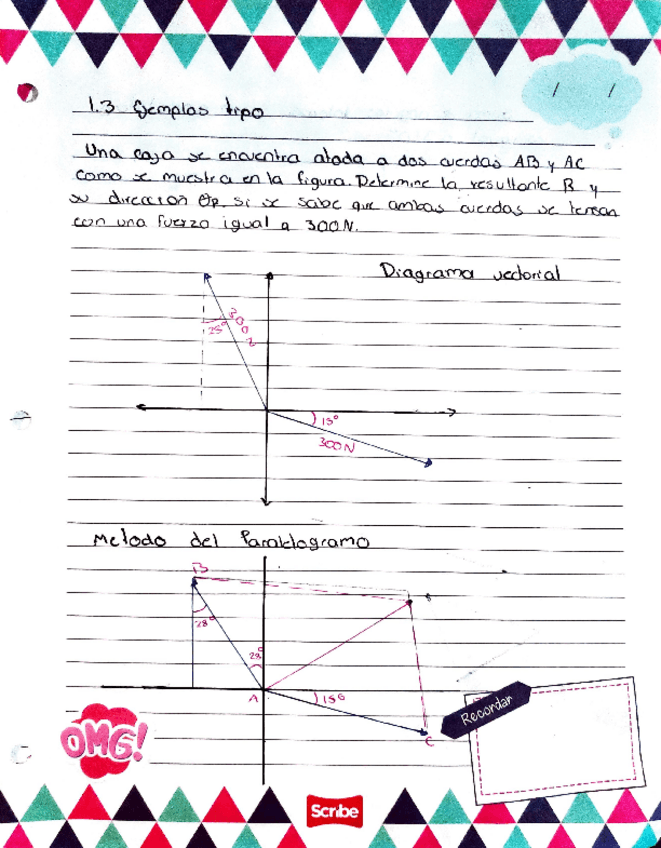 1.3 Ejemplos tipo
Una caja se encuentra atada a dos cuerdas AB y AC
como se muestra en la figura. Determine la resultante R y
su direccion θR si se sabe que ambas cuerdas se tensan
con una fuerza igual a 300 N.
Diagrama vectorial
300 N
25°
15°
300N
Metodo del Paralelogramo
B
28°
28°
A
C
Recordar
OMG!
Scribe